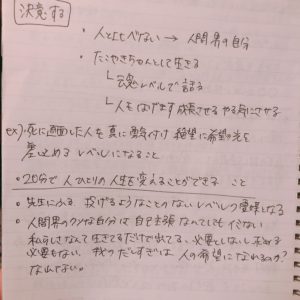 決意する
・人と比べない → 人間界の自分
・たこやきちゃんとして生きる
└魂レベルで語る
└人をはげます 成長させる やる気にさせる
ex)・死に直面した人を真に勇気付け 絶望に希望の光を
差し込めるレベルになること
・20分で人ひとりの人生を変えることができること
・先生にかる 投げるようなことのないレベルの
・人間界のクソな自分は自己主張なんてしてもイミない
私らしさなんて生きてるだけで出てる、必要としないし求める
必要もない。我のだしすぎは人の希望になれるのか?
なれない。